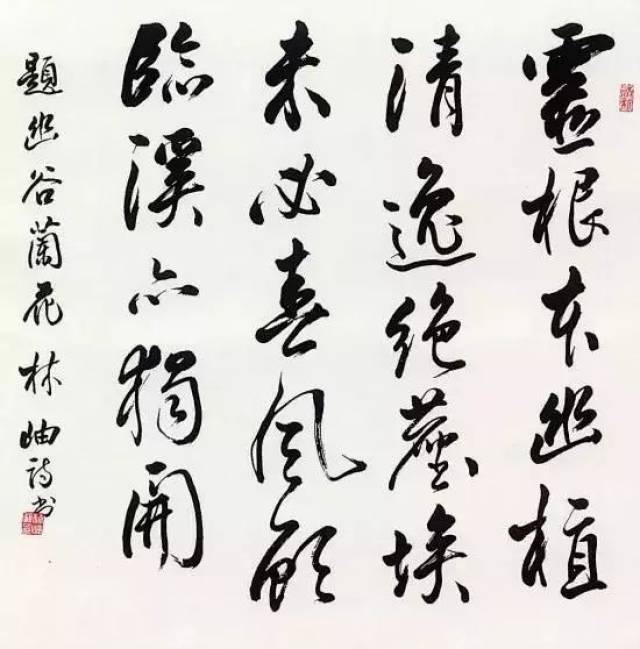 靈根本幽植
清逸絶塵埃
未必春風顧
臨溪亦獨開
題幽谷蘭花 林岫詩书